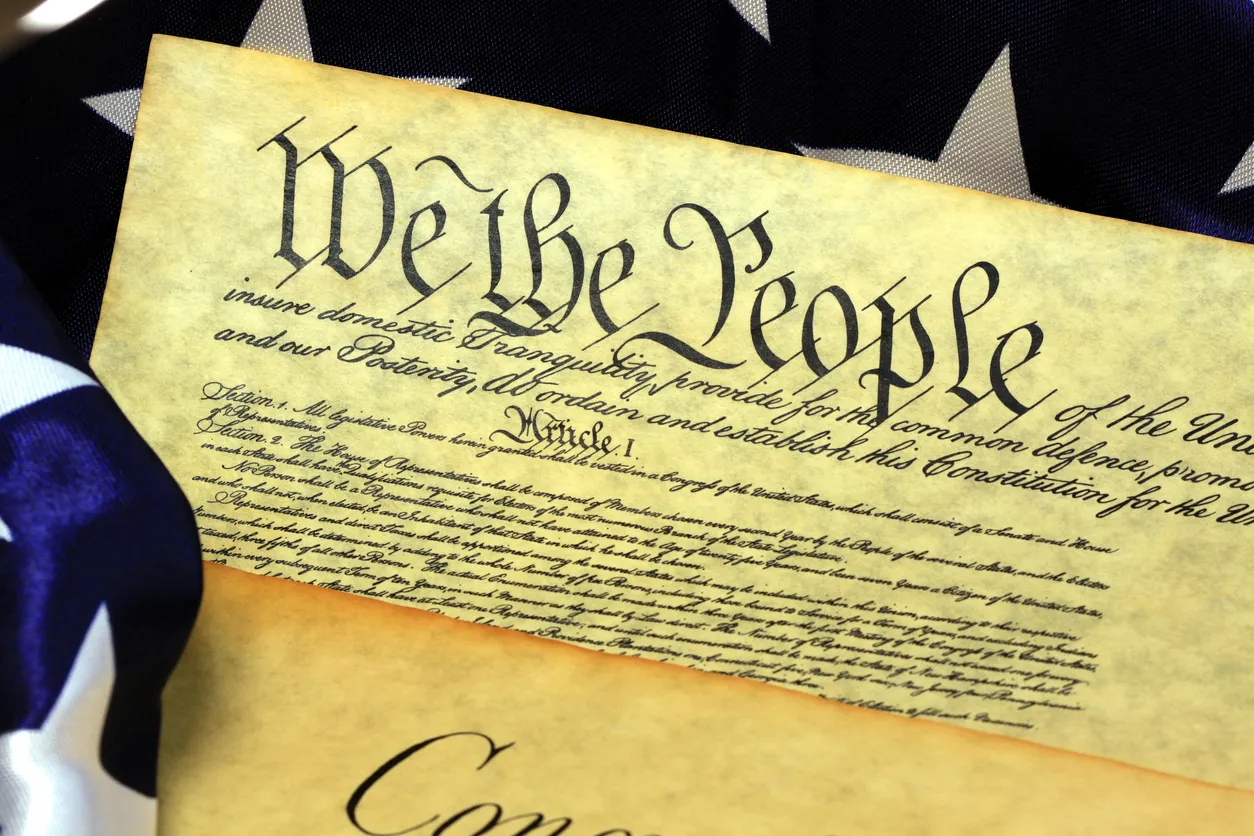 We the People of the Un
insure domestic Tranquility, provide for the common defence, promo
and our Posterity, do ordain and establish this Constitution for the Un
Article I.
Section. 1. All legislative Powers herein granted shall be vested in a Congress of the United States, which shall consist of a Senate and House
of Representatives
Section. 2. The House of Representatives shall be composed of Members chosen every second Year by the People of the several States, and the Electors
in each State shall have the Qualifications requisite for Electors of the most numerous Branch of the State Legislature.
No Person shall be a Representative who shall not have attained to the Age of twenty five Years, and been seven Years a Citizen of the United States,
and who shall not, when elected, be an Inhabitant of that State in which he shall be chosen.
Representatives and direct Taxes shall be apportioned among the several States which may be included within this Union, according to their respective
Numbers, which shall be determined by adding to the whole Number of free Persons, including those bound to Service for a Term of Years, and excluding Indians
three fifths of all other Persons. The actual Enumeration shall be made within three Years after the first Meeting of the Congress of the United States,
within every subsequent Term of ten Years, in such Manner as they shall by Law direct. The Number of Representatives shall not exceed one for every
State shall have at least one Representative; and until such enumeration shall be made, the State of New Hampshire shall be
Con